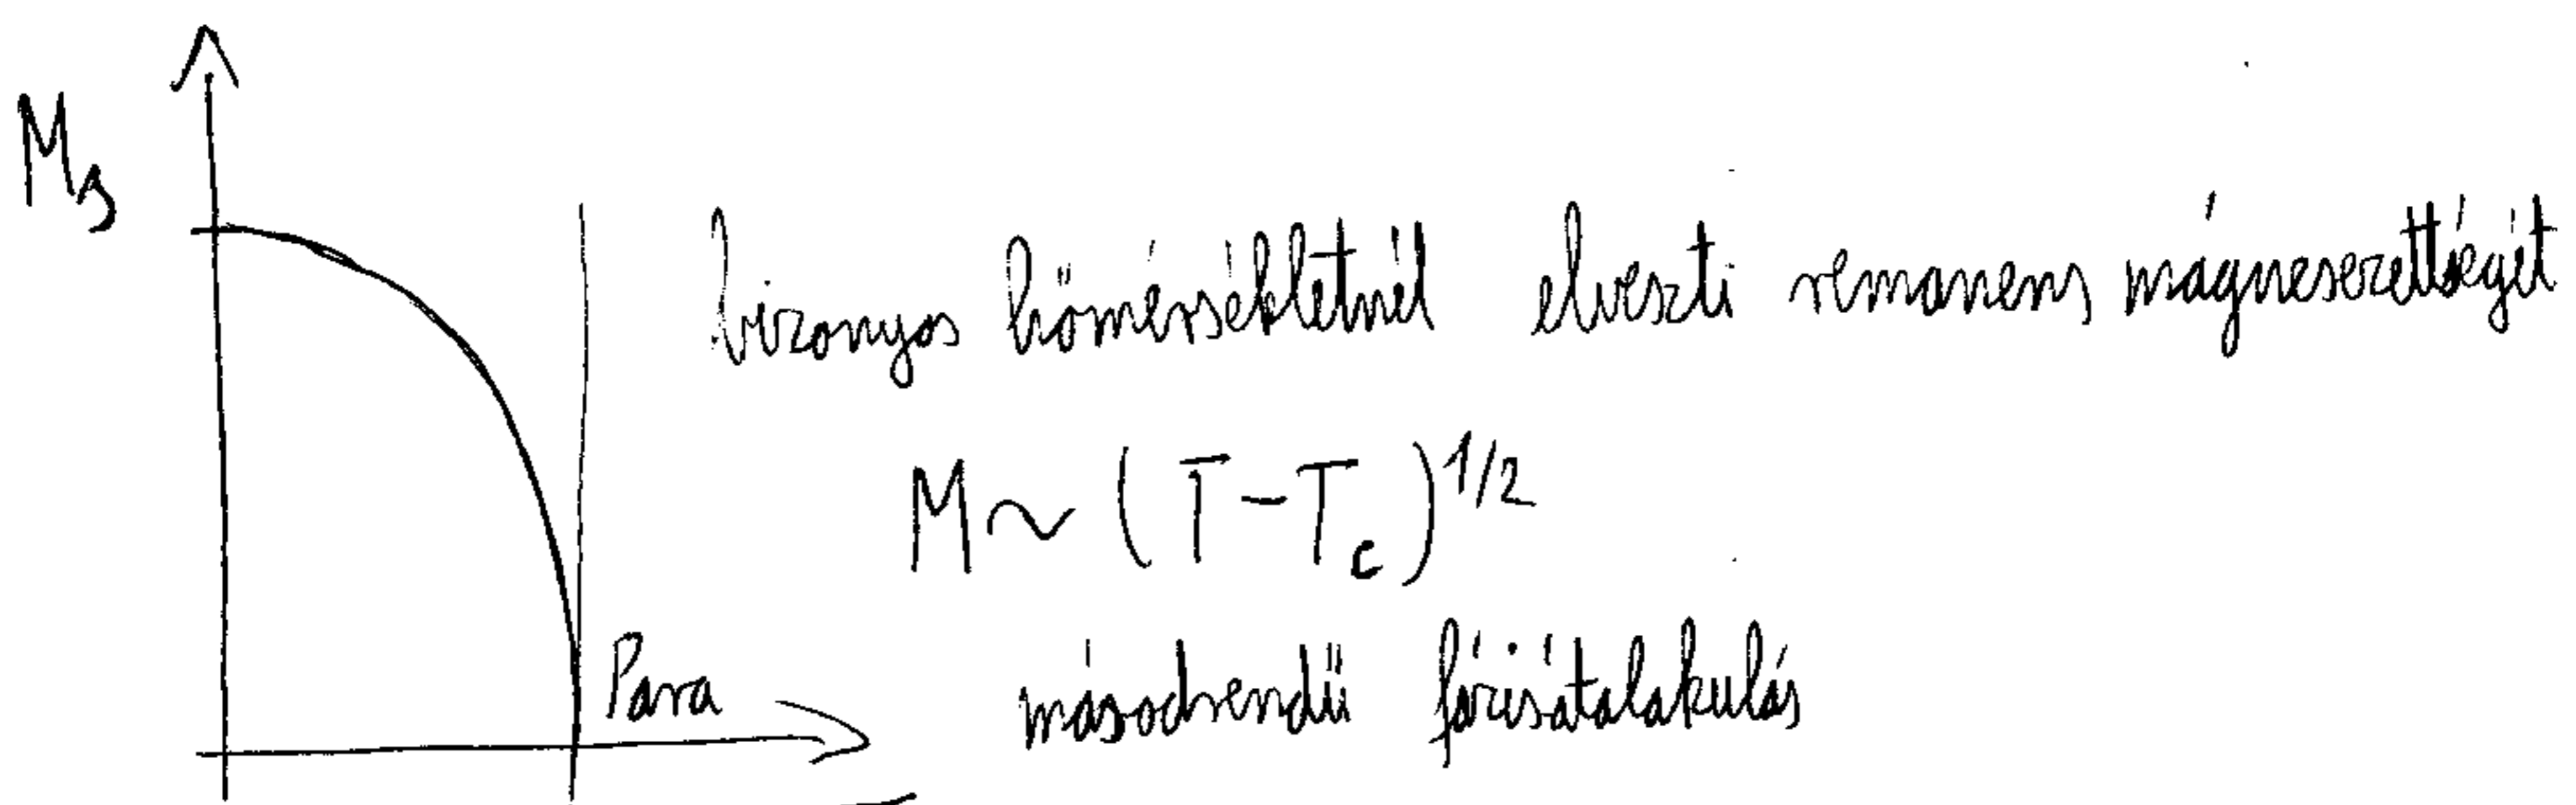 M_s
bizonyos hőmérsékletnél elveszti remanens mágnesezettségét
M ~ (T - T_c)^{1/2}
Para
másodrendű fázisátalakulás